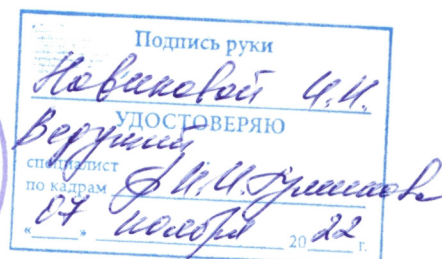 Подпись руки
Новиковой И.И.
УДОСТОВЕРЯЮ
Ведущий
специалист
по кадрам И.И.
«07» ноября 2022 г.